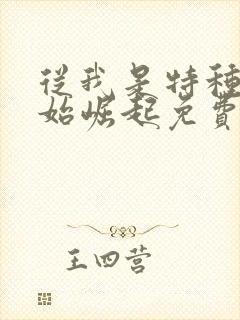 從我是特種
始崛起免費
王四营